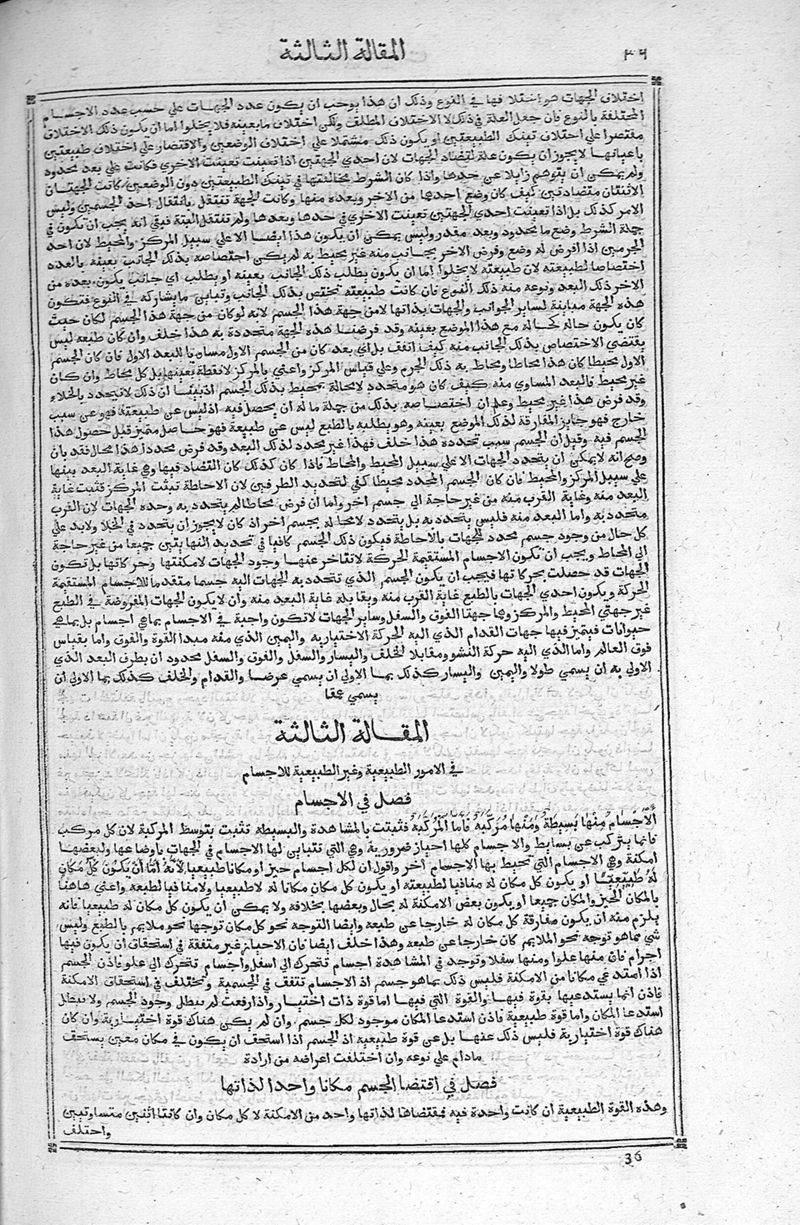 ٣٦
المقالة الثالثة
اختلاف الجهات هو اختلا فها في النوع وذلك ان هذا يوجب ان يكون عدد الجهات علي حسب عدد الاجسام
المختلفة بالنوع فان جعل العلة في ذلك لا الاختلاف المطلق ولكن اختلاف ما بعينه فلا يخلوا اما ان يكون ذلك الاختلاف
مقتصرا علي اختلاف تينك الطبيعتين او يكون ذلك مشتملا علي اختلاف الوضعين والاقتصار علي اختلاف طبيعتين
باعيانها لا يجوز ان يكون علة لتضاد الجهات لان احدي الجهتين اذا تعينت تعينت الاخري فكانت علي بعد محدود
ولم يمكن ان يتوهم زايلا عن حدها واذا كان الشرط مخالفتها في تينك الطبيعتين دون الوضعين كانت الجهتان
الاثنتان متضادتين كيف كان وضع احدها من الاخر وبعده منها وكانت الجهة تنتقل بانتقال احد الجسمين وليس
الامر كذلك بل اذا تعينت احدي الجهتين تعينت الاخري في حدها وبعدها ولم تنتقل البتة فبقي انه يجب ان تكون في
جملة الشرط وضع ما محدود وبعد مقدر وليس يمكن ان يكون هذا ايضا الا علي سبيل المركز والمحيط لان احد
الجرمين اذا افرض له وضع وفرض الاخر بجانب منه غير محيط به لم يكن اختصاصه بذلك الجانب بعينه بالعدد
اختصاصا لطبيعته لان طبيعته لا يخلوا اما ان يكون يطلب ذلك الجانب بعينه او يطلب اي جانب يكون بعده من
الاخر ذلك البعد ونوعه منه ذلك النوع فان كانت طبيعته تختص بذلك الجانب وتباين ما يشاركه في النوع فتكون
هذه الجهة مباينة لساير الجوانب والجهات بذاتها لا من جهة هذا الجسم لانه لو كان من جهة هذا الجسم لكان حيث
كان يكون حاله كحاله مع هذا الموضع بعينه وقد فرضنا هذه الجهة متحددة به هذا خلف وان كان طبعه ليس
يقتضي الاختصاص بذلك الجانب منه كيف اتفق بل اي بعد كان من الجسم الاول مساو بالبعد الاول فان كان الجسم
الاول محيطا كان هذا محاطا ومحاط به ذلك الجرم وعلي قياس المركز واعني بالمركز لا نقطة بعينها بل كل محاط وان كان
غير محيط فالبعد المساوي منه كيف كان هو متحدد لا محالة بمحيط بذلك الجسم اذ بينا ان ذلك لا يتحدد بالخلاء
وقد فرض هذا غير محيط وعلم ان اختصاصه بذلك من جملة ما له ان يحصل فيه اذ ليس عن طبيعته فهو عن سبب
خارج فهو جايز المفارقة لذلك الموضع بعينه وهو يطلبه بالطبع ليس عن طبيعة فهو حاصل متميز قبل حصول هذا
الجسم فيه وقيل ان الجسم سبب تحدده هذا خلف فهذا غير محدد لذلك البعد وقد فرض محددا هذا محال فقد بان
وصح انه لا يمكن ان يتحدد الجهات الا علي سبيل المحيط والمحاط فاذا كان كذلك كان التضاد فيها وهي غاية البعد بينها
علي سبيل المركز والمحيط فان كان الجسم المحدد محيطا كفي لتحديد الطرفين لان الاحاطة تثبت المركز فتثبت غاية
البعد منه وغاية القرب منه من غير حاجة الي جسم اخر واما ان فرض محاطا لم يتحدد به وحده الجهات لان القرب
متحدد به واما البعد منه فليس يتحدد به بل يتحدد لا محالة بجسم اخر اذ كان لا يجوز ان يتحدد في الخلا ولابد علي
كل حال من وجود جسم محدد للجهات بالاحاطة فيكون ذلك الجسم كافيا في تحديد النهايتين جميعا من غير حاجة
الي المحاط ويجب ان تكون الاجسام المستقيمة الحركة لا تتاخر عنها وجود الجهات لامكنتها وحركاتها بل تكون
الجهات قد حصلت بحركا تها فيجب ان يكون الجسم الذي تتحدد به الجهات اليه جسما متقدما للاجسام المستقيمة
الحركة ويكون احدي الجهات بالطبع غاية القرب منه ويقابله غاية البعد منه وان لا يكون الجهات المفروضة في الطبع
غير جهتي المحيط والمركز وهما جهتا الفوق والسفل وساير الجهات لا تكون واجبة في الاجسام بما هي اجسام بل بما هي
حيوانات فيتميز فيها جهات القدام الذي اليه الحركة الاختيارية واليمين الذي منه مبدا القوة والفوق واما بقياس
فوق العالم واما الذي اليه حركة النشو ومقابلا الخلف واليسار والسفل والفوق والسفل محدود ان بطرفي البعد الذي
الاولي به ان يسمي طولا واليمين واليسار كذلك بما الاولي ان يسمي عرضا والقدام والخلف كذلك بما الاولي ان
يسمي عمقا
المقالة الثالثة
في الامور الطبيعية وغير الطبيعية للاجسام
فصل في الاجسام
الاجسام منها بسيطة ومنها مركبة فاما المركبة فثبتت بالمشاهدة والبسيطة تثبت بتوسط المركبة لان كل مركب
فانما يتركب عن بسايط والا جسام كلها احياز ضرورية وهي التي تتباين لها الاجسام في الجهات باوضاعها ولبعضها
امكنة وهي الاجسام التي تحيط بها الاجسام اخر واقول ان لكل اجسام حيز او مكانا طبيعيا لانه اما ان يكون كل مكان
له طبيعيا او يكون كل مكان له منافيا لطبيعته او يكون كل مكان مكانا له لا طبيعيا ولا منافيا لطبعه واعني هاهنا
بالمكان الحيز والمكان جميعا او يكون بعض الامكنة له بحال وبعضها بخلافه ولا يمكن ان يكون كل مكان له طبيعيا فانه
يلزم منه ان يكون مفارقة كل مكان له خارجا عن طبعه وايضا التوجه نحو كل مكان توجها نحو ملايم بالطبع وليس
شي مما هو توجه نحو الملايم كان خارجا عن طبعه وهذا خلف ايضا فان الاحياز غير متفقة في استحقاق ان يكون فيها
اجرام فان منها علوا ومنها سفلا وتوجد في المشاهدة اجسام تتحرك الي اسفل واجسام تتحرك الي علو فاذن الجسم
اذا استدعي مكانا من الامكنة فليس ذلك بما هو جسم اذ الاجسام تتفق في الجسمية وتختلف في استحقاق الامكنة
فاذن انما يستدعيها بقوة فيها والقوة التي فيها اما قوة ذات اختيار واذا رفعت لم يبطل وجود الجسم ولا يبطل
استدعا المكان واما قوة طبيعية فاذن استدعا المكان موجود لكل جسم وان لم يكن هناك قوة اختيارية وان كان
هناك قوة اختيارية فليس ذلك عنها بل عن قوة طبيعية اذ الجسم اذا استحق ان يكون في مكان معين يستحق
مادام علي نوعه وان اختلفت اعراضه من ارادة
فصل في اقتضا الجسم مكانا واحدا لذاتها
وهذه القوة الطبيعية ان كانت واحدة فيه فمقتضاها لذاتها واحد من الامكنة لا كل مكان وان كانتا اثنين متساوتيين
واختلف
36